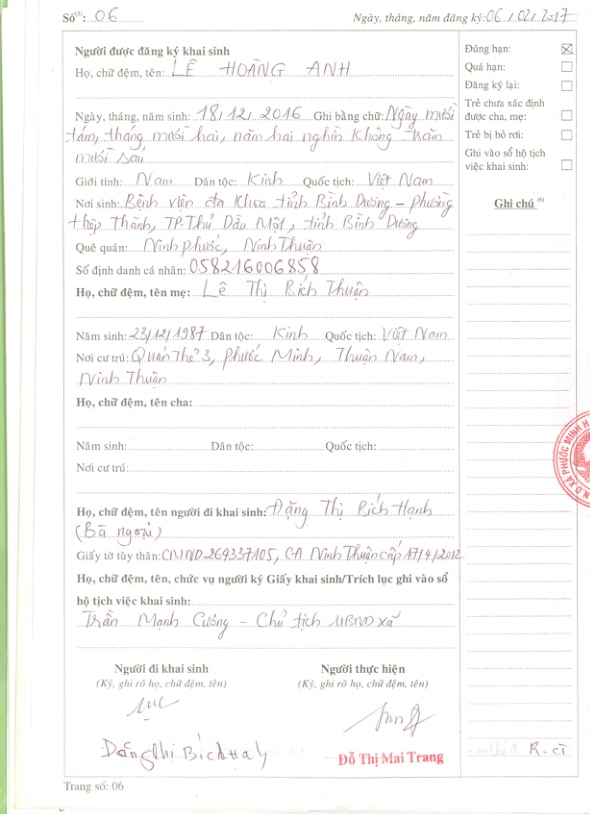 Số⁽⁵⁾: 06 Ngày, tháng, năm đăng ký: 06/02/2017
Người được đăng ký khai sinh
Họ, chữ đệm, tên: LÊ HOÀNG ANH
Ngày, tháng, năm sinh: 18/12/2016 Ghi bằng chữ: Ngày mười
tám, tháng mười hai, năm hai nghìn không trăm
mười sáu
Giới tính: Nam Dân tộc: Kinh Quốc tịch: Việt Nam
Nơi sinh: Bệnh viện đa khoa tỉnh Bình Dương – Phường
Hiệp Thành, TP. Thủ Dầu Một, tỉnh Bình Dương
Quê quán: Ninh Phước, Ninh Thuận
Số định danh cá nhân: 058216006858
Họ, chữ đệm, tên mẹ: Lê Thị Bích Thuận
Năm sinh: 23/12/1987 Dân tộc: Kinh Quốc tịch: Việt Nam
Nơi cư trú: Quán Thẻ 3, Phước Minh, Thuận Nam,
Ninh Thuận
Họ, chữ đệm, tên cha:
Năm sinh: Dân tộc: Quốc tịch:
Nơi cư trú:
Họ, chữ đệm, tên người đi khai sinh: Đặng Thị Bích Hạnh
(Bà ngoại)
Giấy tờ tùy thân: CMND 264337105, CA Ninh Thuận cấp 17/4/2012
Họ, chữ đệm, tên, chức vụ người ký Giấy khai sinh/Trích lục ghi vào sổ
hộ tịch việc khai sinh:
Trần Mạnh Cường – Chủ tịch UBND xã
Người đi khai sinh Người thực hiện
(Ký, ghi rõ họ, chữ đệm, tên) (Ký, ghi rõ họ, chữ đệm, tên)
Đỗ Thị Mai Trang
Trang số: 06
Đúng hạn: ☒
Quá hạn: ☐
Đăng ký lại: ☐
Trẻ chưa xác định
được cha, mẹ: ☐
Trẻ bị bỏ rơi: ☐
Ghi vào sổ hộ tịch
việc khai sinh: ☐
Ghi chú ⁽⁶⁾
N.D XÃ PHƯỚC MINH H
R-CT